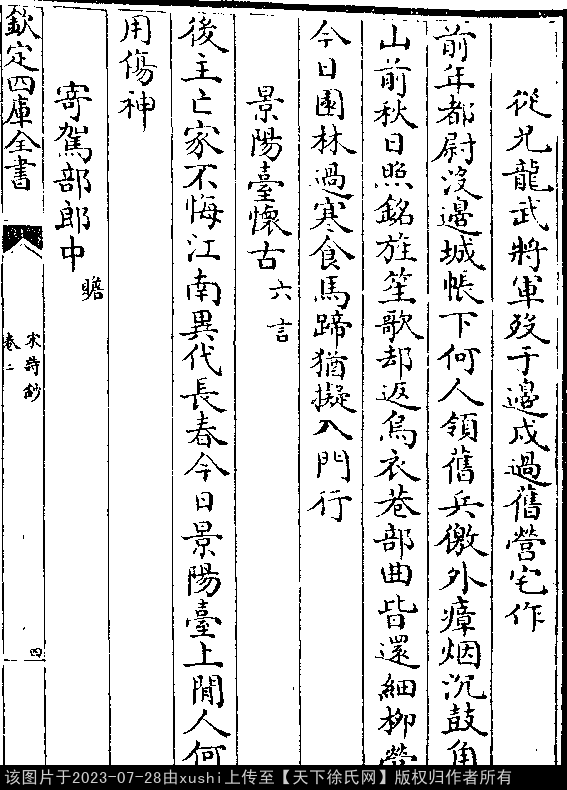 從兄龍武將軍歿于邊戍過舊營宅作
前年都尉沒邊城帳下何人領舊兵徼外瘴烟沉鼓角
山前秋日照銘旌笙歌却返烏衣巷部曲皆還細柳營
今日園林過寒食馬蹄猶擬入門行
景陽臺懷古 六言
後主亡家不悔江南異代長春今日景陽臺上閒人何
用傷神
寄駕部郎中 瞻
欽定四庫全書
宋詩鈔
卷二
四
该图片于2023-07-28由xushi上传至【天下徐氏网】版权归作者所有